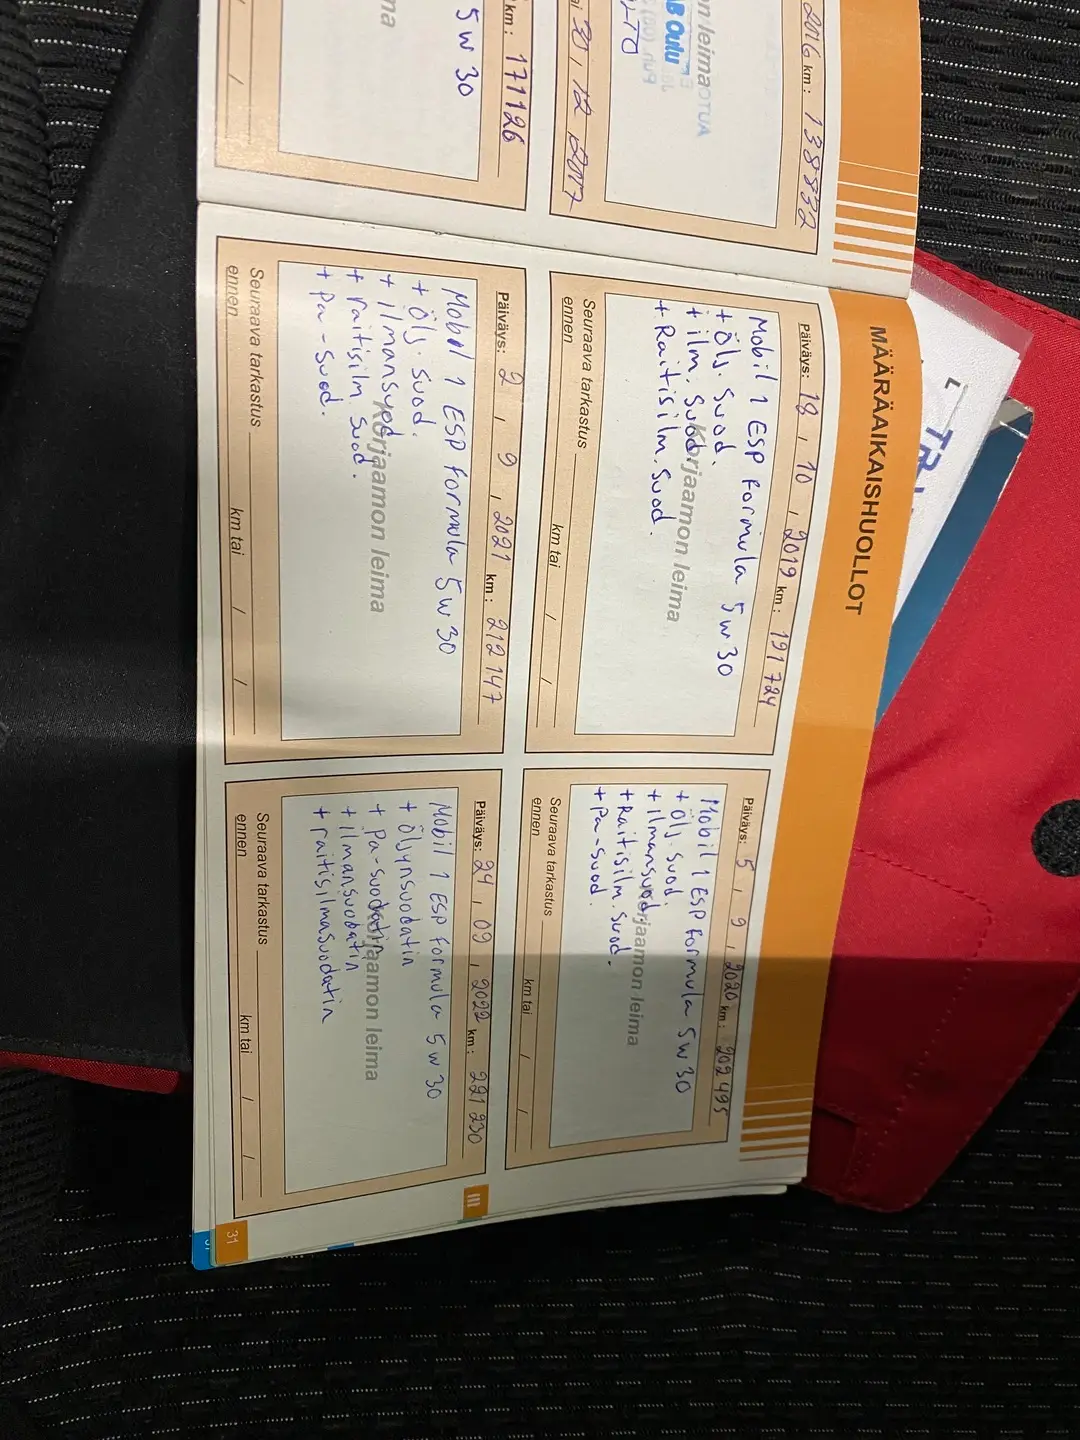 2016 km: 138832
n leima
AB Oulu
30, 12 2017
km: 171126
5w30
MÄÄRÄAIKAISHUOLLOT
Päiväys: 18, 10, 2019 km: 191724
Mobil 1 ESP Formula 5w30
+ Ölj. Suod.
+ ilm. Suod.
+ Raitisilm. Suod.
Korjaamon leima
Seuraava tarkastus
ennen
km tai / /
Päiväys: 5, 9, 2020 km: 202495
Mobil 1 ESP Formula 5w30
+ Ölj. Suod.
+ ilmansuod.
+ Raitisilm. Suod.
+ Pa-Suod.
Korjaamon leima
Seuraava tarkastus
ennen
km tai / /
Päiväys: 2, 9, 2021 km: 212147
Mobil 1 ESP Formula 5w30
+ Ölj. Suod.
+ ilmansuod.
+ raitisilm. Suod.
+ Pa-Suod.
Korjaamon leima
Seuraava tarkastus
ennen
km tai / /
Päiväys: 24, 09, 2022 km: 221230
Mobil 1 ESP Formula 5w30
+ Öljynsuodatin
+ Pa-suodatin
+ ilmansuodatin
+ raitisilmasuodatin
Korjaamon leima
Seuraava tarkastus
ennen
km tai / /
III
31